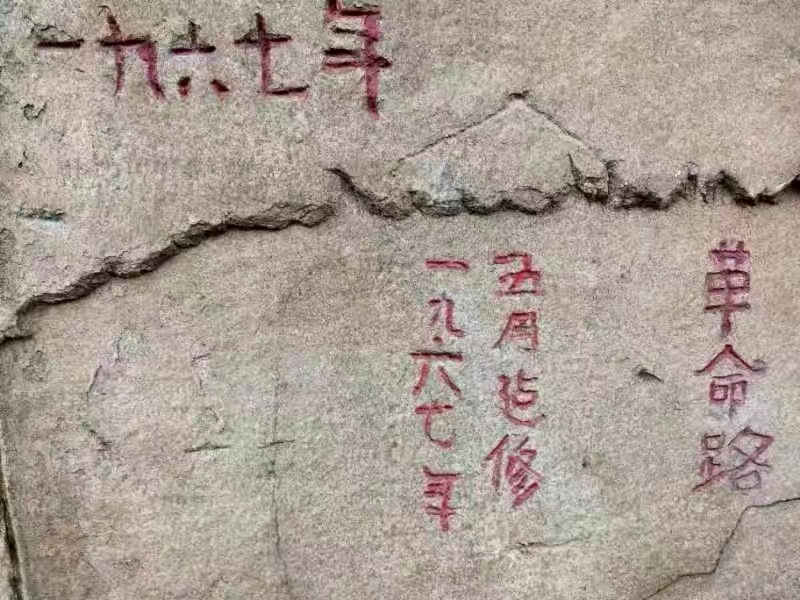 一九六七年
革命路
五月迠修
一九六七年